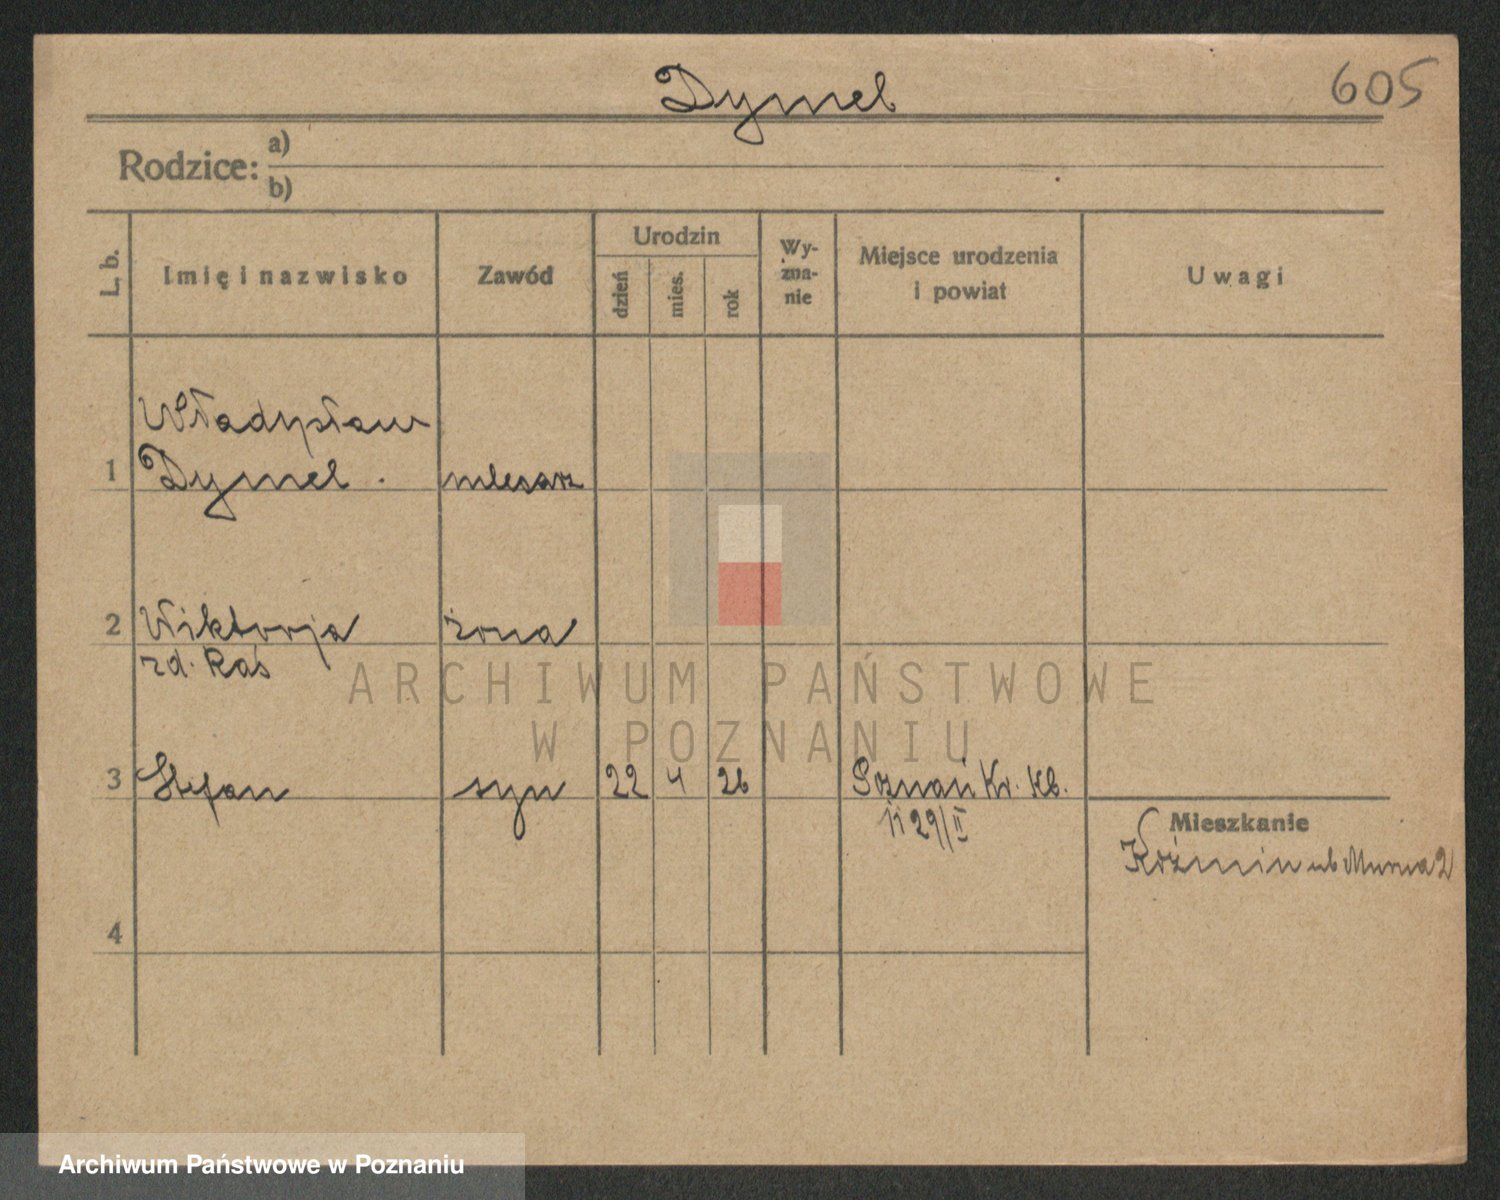 Dymel
605
Rodzice: a)
b)
L. b.
Imię i nazwisko
Zawód
Urodzin
dzień
mies.
rok
Wy-
zna-
nie
Miejsce urodzenia
i powiat
Uwagi
Władysław
1 Dymel . mleczarz
2 Wiktorja żona
rd. Raś
3 Stefan syn 22 4 26 Poznań Kr. Kb.
29/II
Mieszkanie
Koźmin ul Murna 2
4
ARCHIWUM PAŃSTWOWE
W POZNANIU
Archiwum Państwowe w Poznaniu